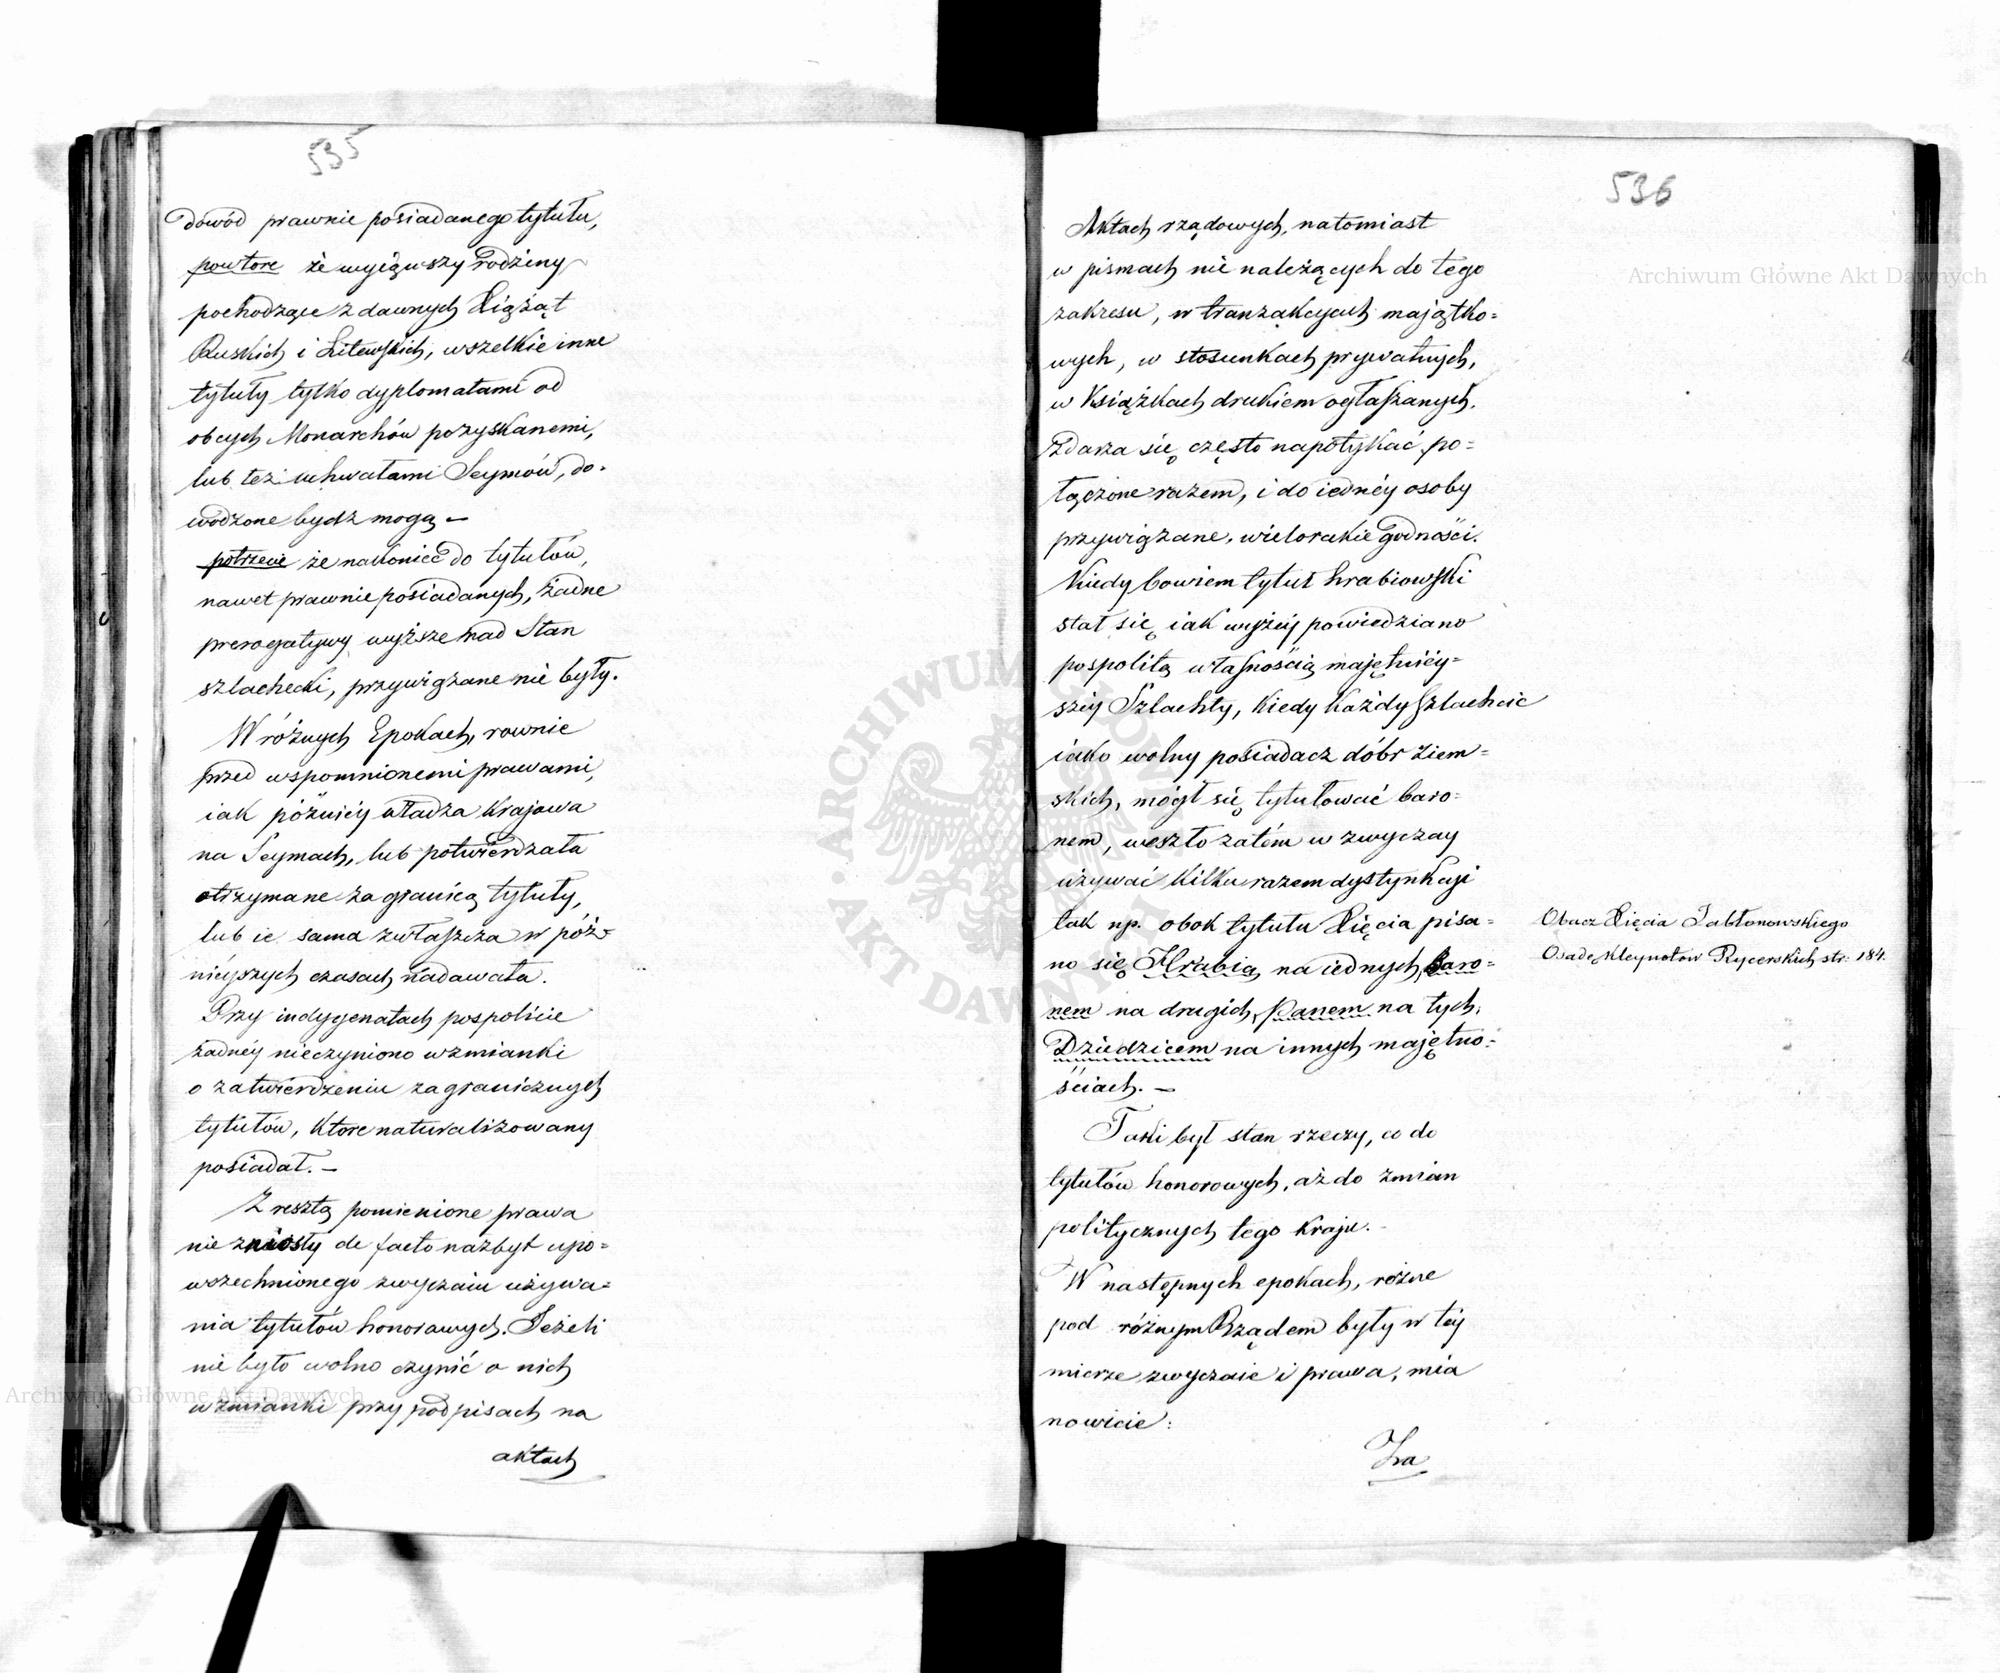 535
dowód prawnie posiadanego tytułu,
powtore że wyiąwszy rodziny
pochodzące z dawnych Xiążąt
Ruskich i Litewskich, wszelkie inne
tytuły tylko dyplomatami od
obcych Monarchów pozyskanemi,
lub też uchwałami Seymów, do-
wodzone bydz mogą —
potrzecie że nakoniec do tytułów,
nawet prawnie posiadanych, żadne
prerogatywy wyższe nad Stan
szlachecki, przywiązane nie były.
W różnych Epokach, rownie
przed wspomnionemi prawami,
iak późniéy władza Krajowa
na Seymach, lub potwierdzała
otrzymane za granicą tytuły,
lub ie sama zwłaszcza w póź-
niéyszych czasach nadawała.
Przy indygenatach pospolicie
żadnéy nieczyniono wzmianki
o zatwierdzeniu zagranicznych
tytułów, ktore naturalizowany
posiadał. —
Z resztą pomienione prawa
nie zniosły de facto nazbyt upo=
wszechnionego zwyczaiu używa=
nia tytułów honorowych. Jeżeli
nie było wolno czynić o nich
wzmianki przy podpisach na
aktach
536
Aktach rządowych, natomiast
w pismach nie należących do tego
zakresu, w tranzakcyach majątko=
wych, w stosunkach prywatnych,
w Książkach drukiem ogłaszanych,
Zdarza się często napotykać po=
łączone razem, i do iednéy osoby
przywiązane, wielorakie godności.
Kiedy bowiem tytuł hrabiowski
stał się, iak wyżéy powiedziano
pospolitą własnością majętniéy=
széy Szlachty, Kiedy Każdy Szlachcic
iako wolny posiadacz dóbr ziem=
skich, mógł się tytułować baro=
nem, weszło zatém w zwyczay
używać Kilku razem dystynkcyi
tak np. obok tytułu Xięcia pisa=
no się Hrabią na iednych, Baro=
nem na drugich, Panem na tych,
Dziedzicem na innych majętno=
ściach. —
Taki był stan rzeczy, co do
tytułów honorowych, aż do zmian
politycznych tego Kraju. -
W następnych epokach, różne
pod różnym Rządem były w téy
mierze zwyczaie i prawa, mia
nowicie:
Za
Obacz Xięcia Jabłonowskiego
Osadę Kleynotow Rycerskich str. 184.
Archiwum Główne Akt Dawnych
Archiwum Główne Akt Dawnych
· ARCHIWUM GŁÓWNE · AKT DAWNYCH